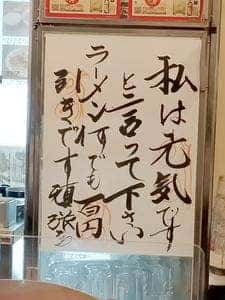 私は元気です
と言って下さい
ラーメンすべて百円
引きです 頑張ろう